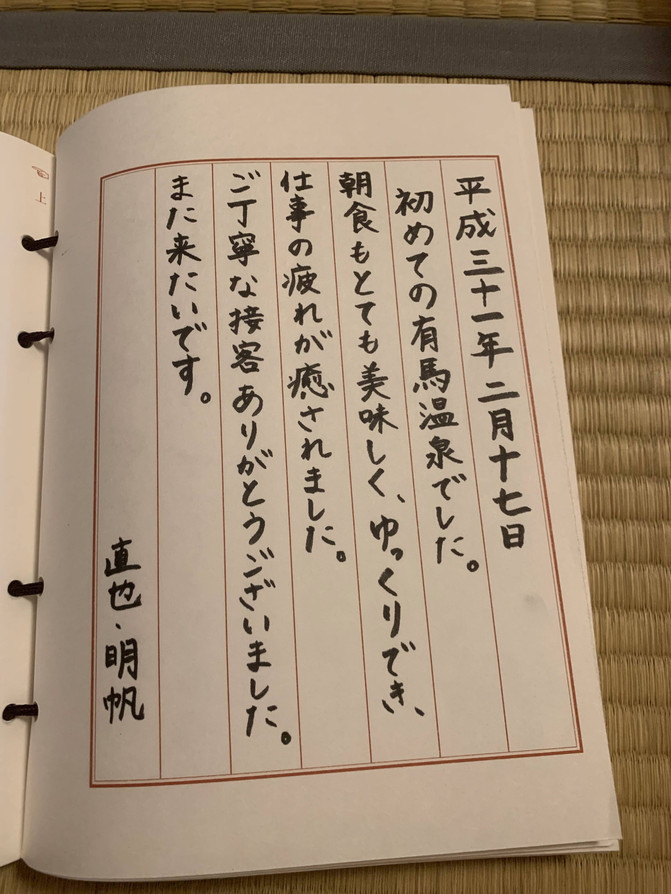 平成三十一年二月十七日
初めての有馬温泉でした。
朝食もとても美味しく、ゆっくりでき、
仕事の疲れが癒されました。
ご丁寧な接客ありがとうございました。
また来たいです。
直也・明帆
上